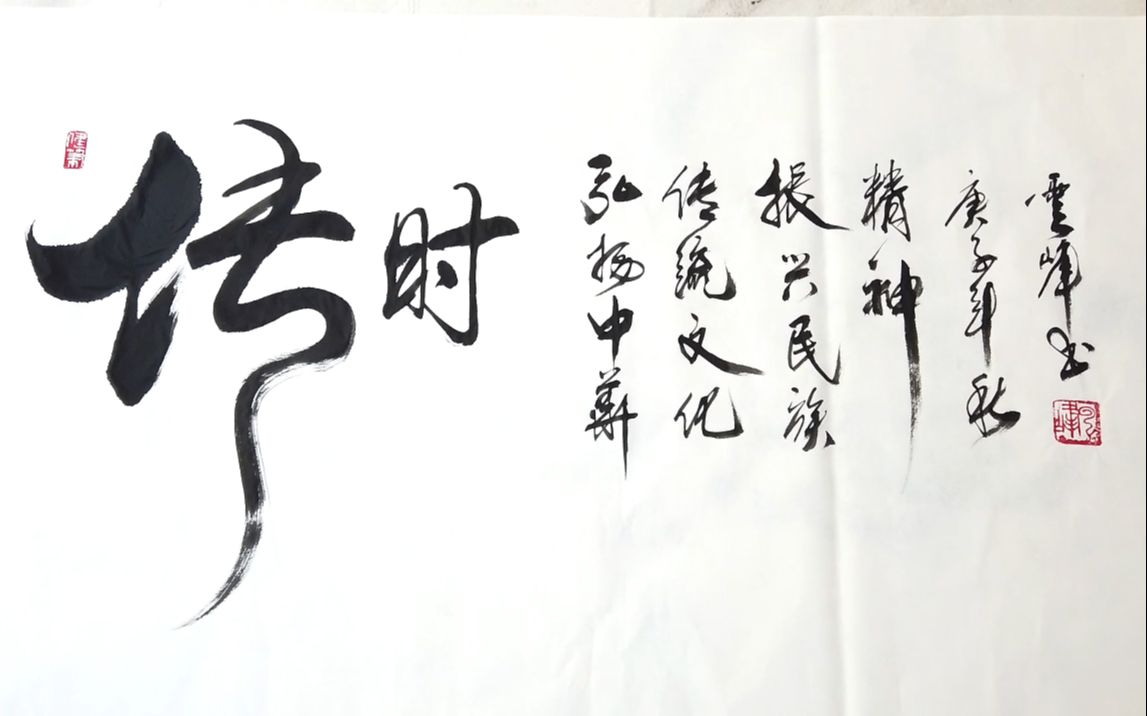 传时
弘扬中华
传统文化
振兴民族
精神
庚子年秋
雲峰书